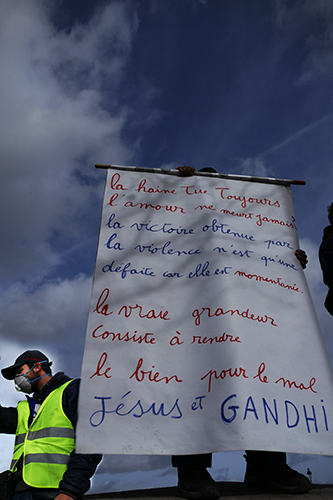 la haine tue Toujours
l'amour ne meurt jamais
la victoire obtenue par
la violence n'est qu'une
défaite car elle est momentanée.
la vraie grandeur
consiste à rendre
le bien pour le mal
Jésus et GANDHI